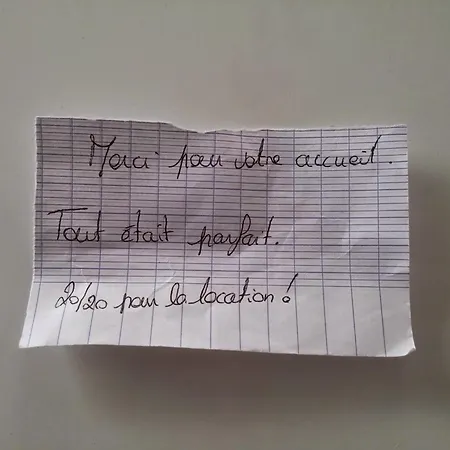 Merci pour votre accueil.
Tout était parfait.
20/20 pour la location !